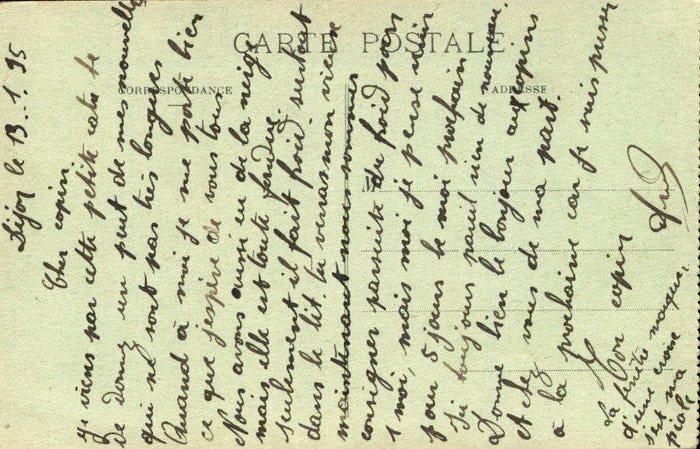 CARTE POSTALE
CORRESPONDANCE
ADRESSE
M
Dijon le 13.1.35
Cher copin
Je viens par cette petite carte te
De donnez un peut de mes nouvelles
qui ne sont pas très longues
Quand à moi je me porte bien
ce que j'espère de vous tous
Nous avons aussi eu de la neige
mais elle est toute fondue.
seulement il fait froid surtout
dans le lit. tu verras mon vieux
maintenant nous sommes
consigner parsuite du froid pour
1 moi, mais moi je pense venir
pour 5 jours le moi prochain
Ici toujours pareil rien de nouveau.
Donne bien le bonjour aux copins
et chez vous de ma part.
à la prochaine car je suis presser
Ton copin
La marquer
d'une croix
sest ma
piole